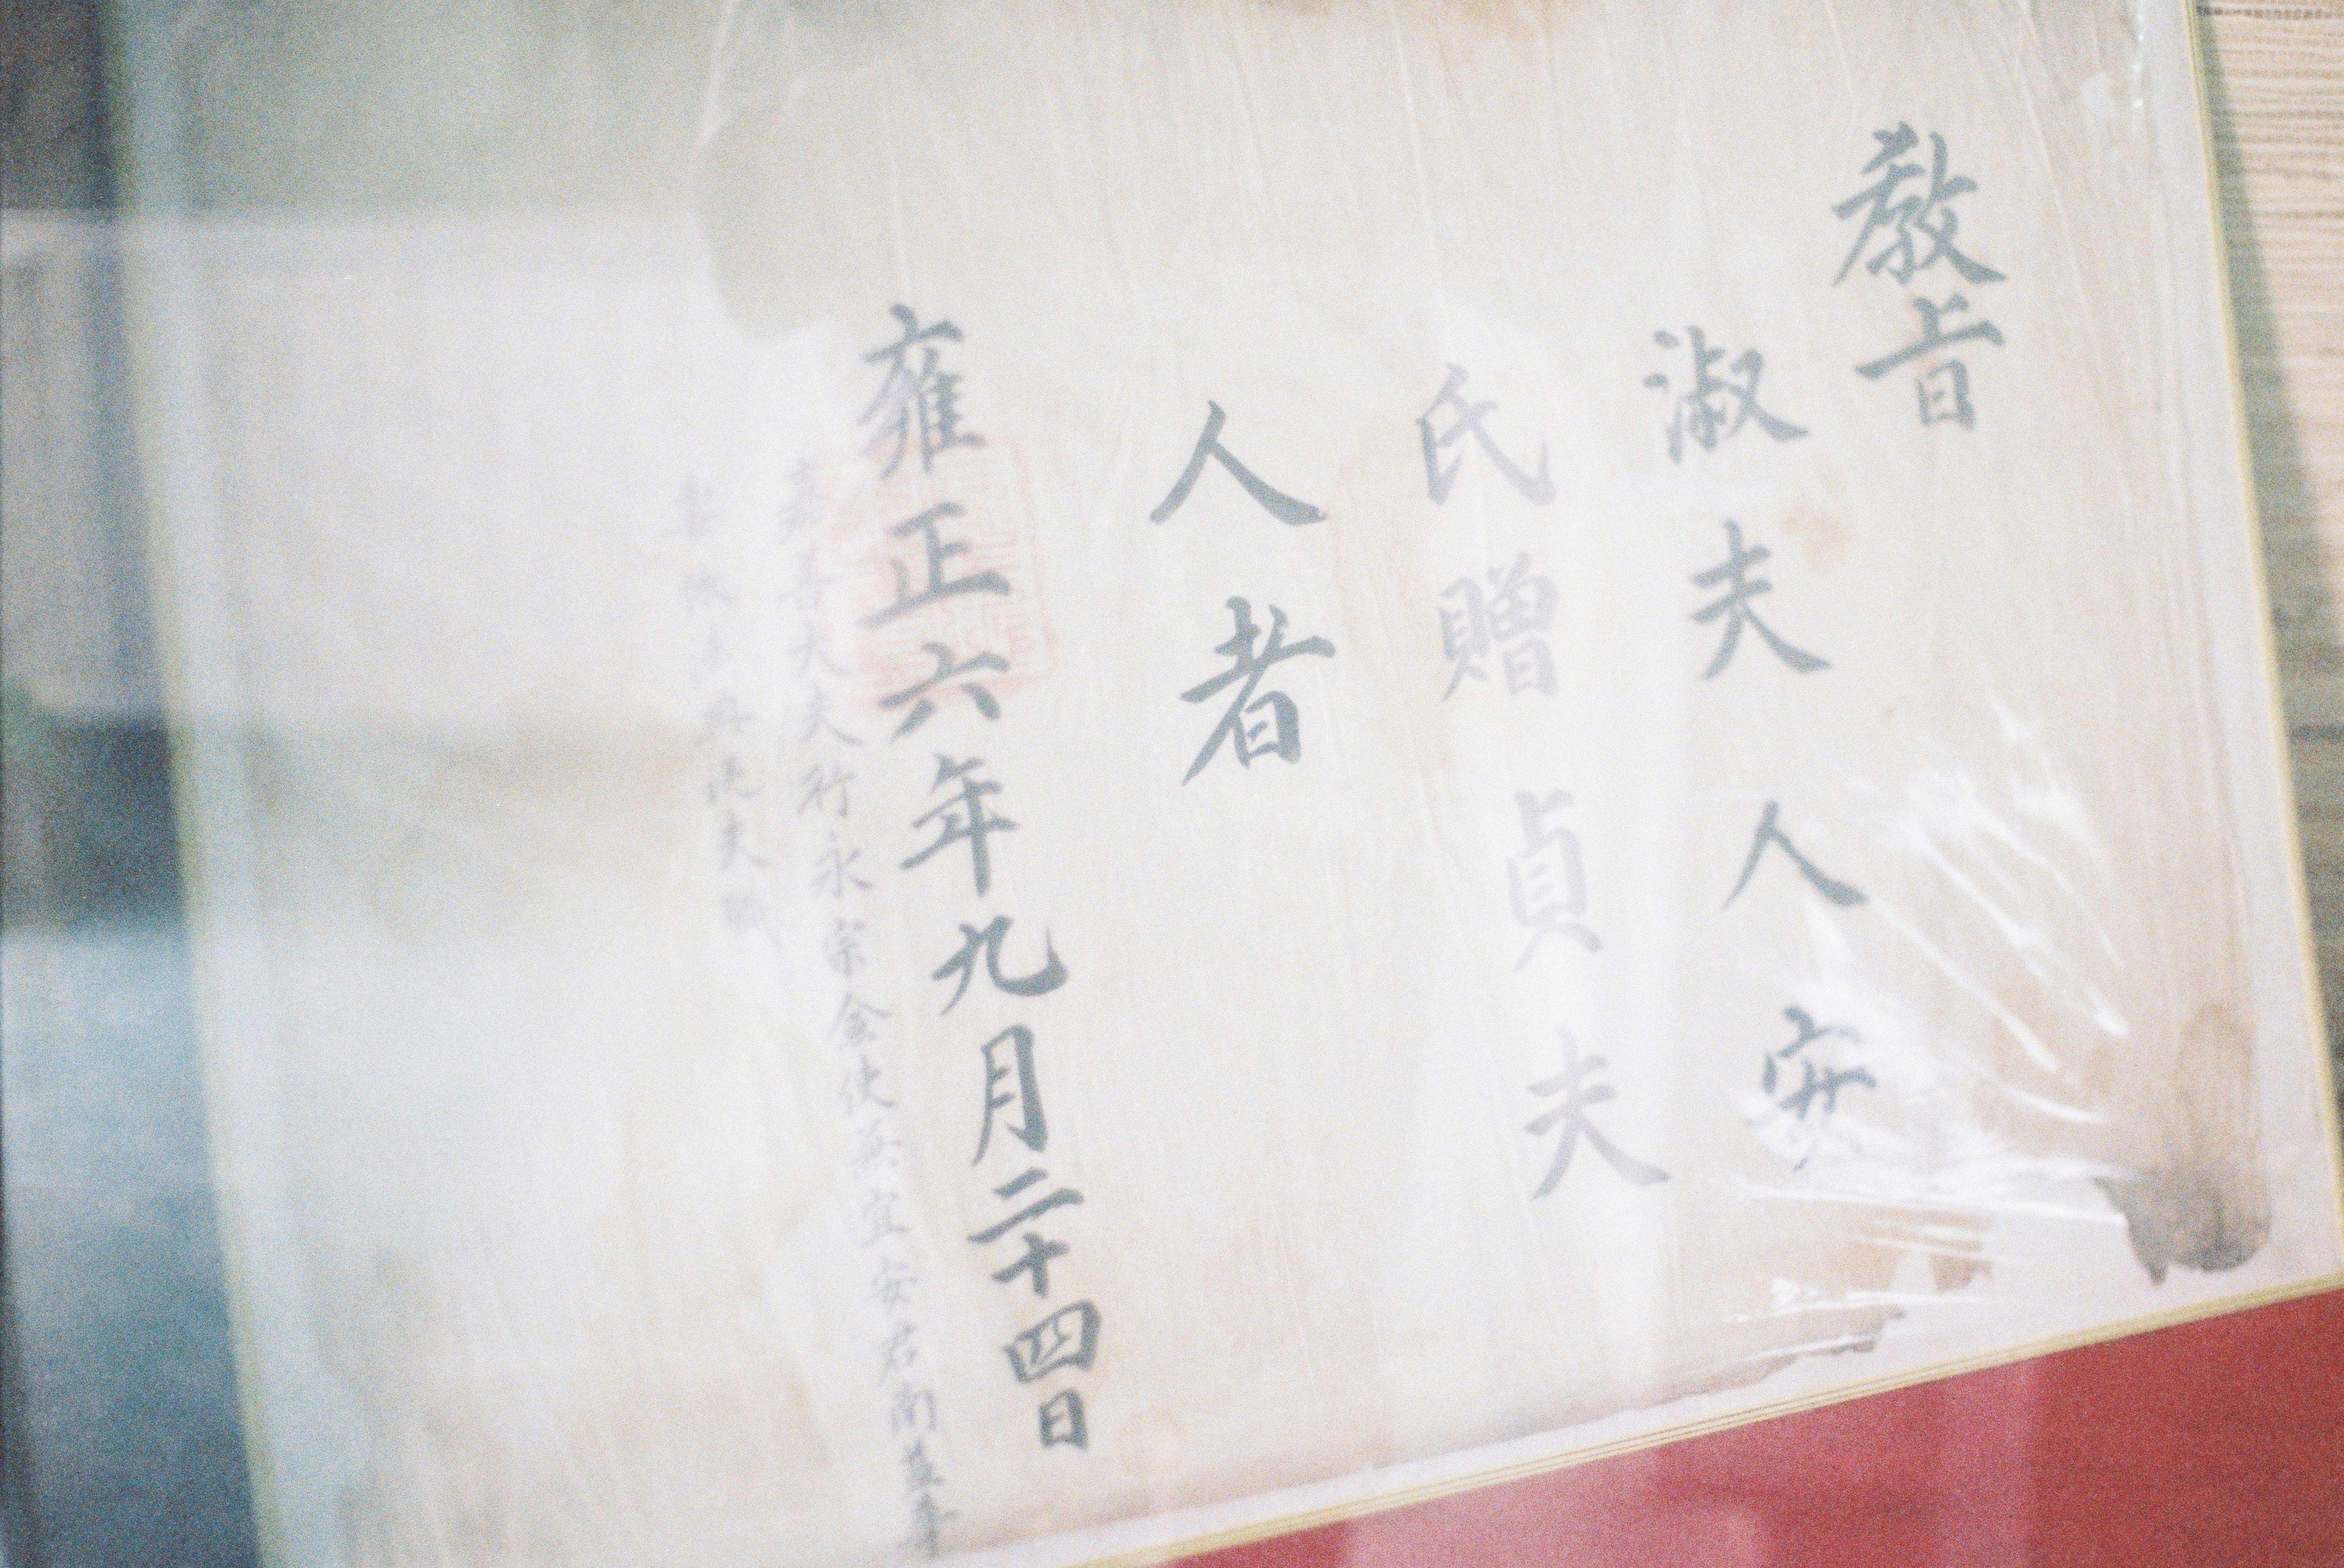 敎旨
淑夫人安
氏贈貞夫
人者
雍正六年九月二十四日
嘉善大夫行永宗僉使兼宜安君南益華